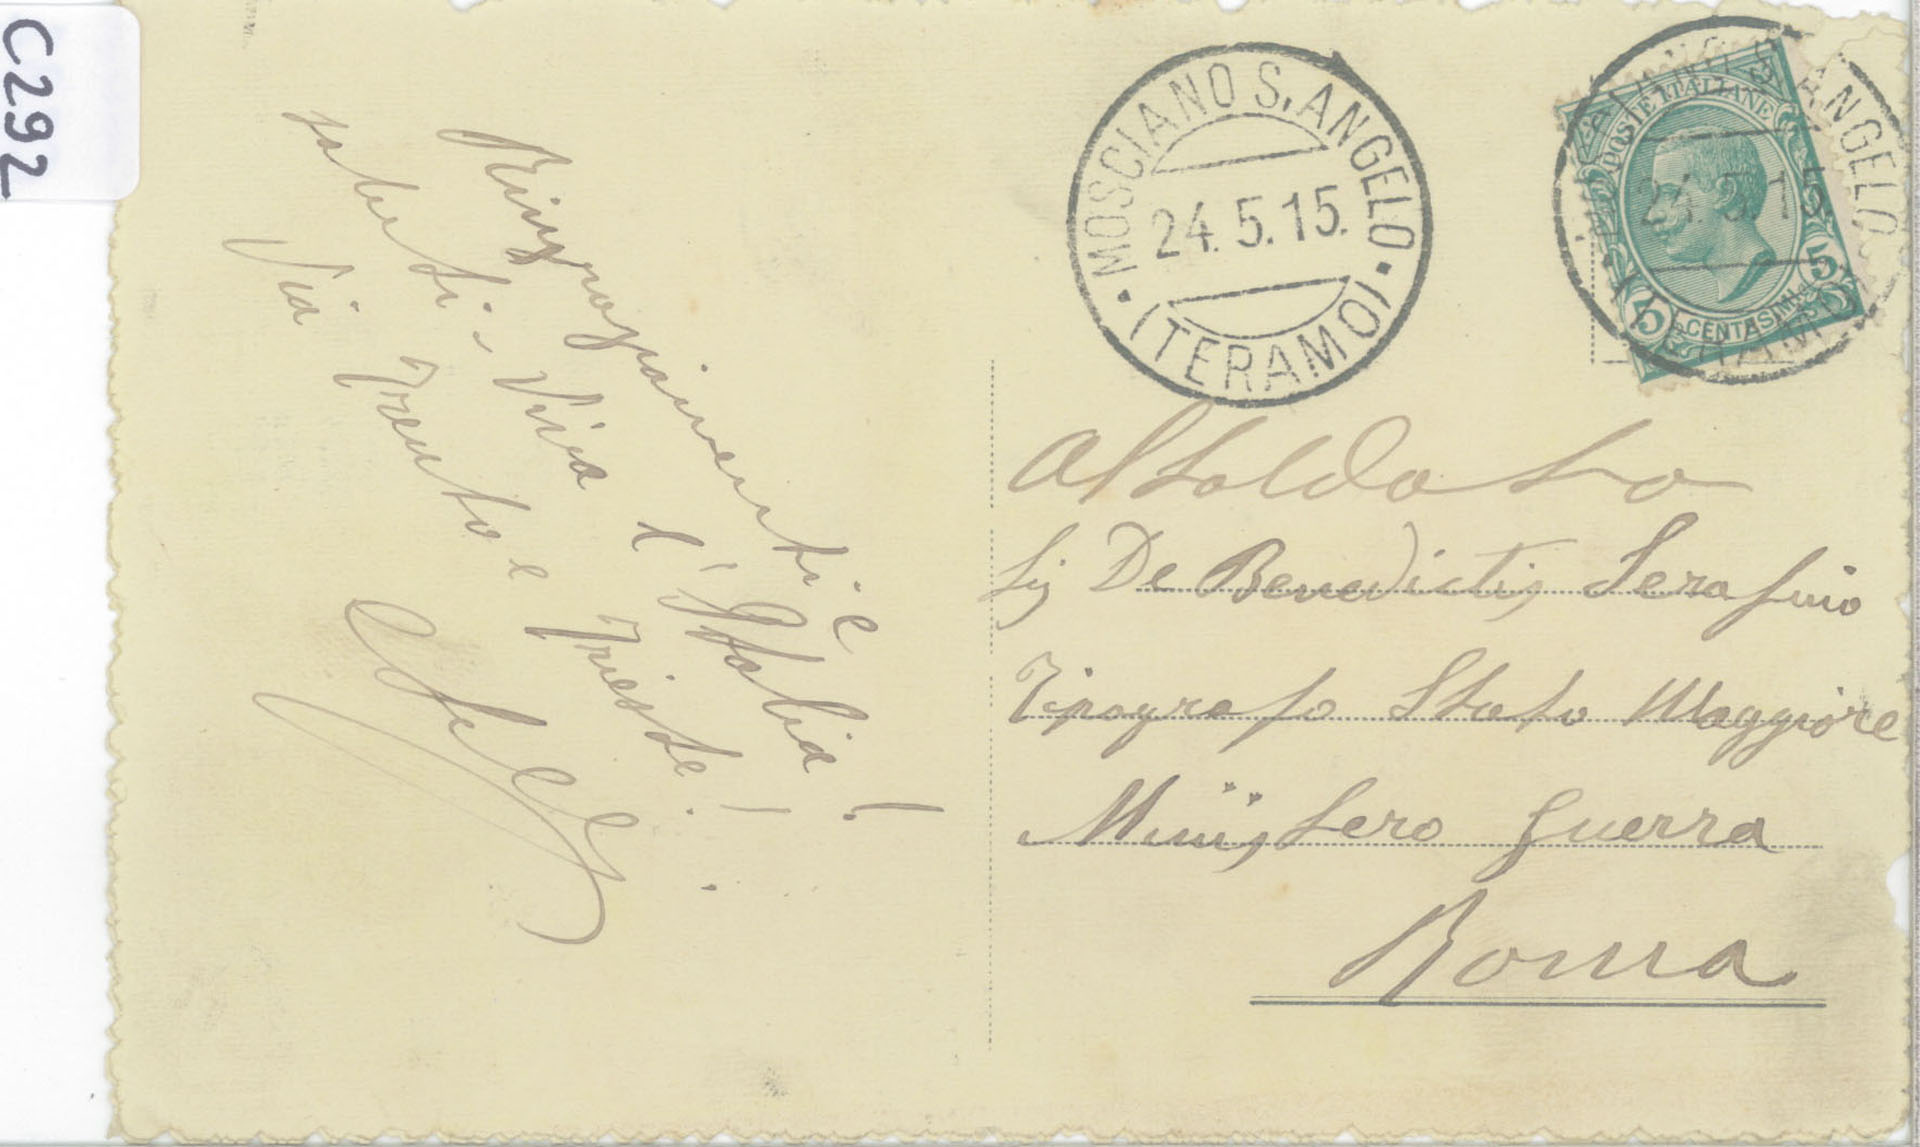 C292
Ringraziamenti e
saluti. Viva l'Italia!
Via Trento e Trieste!
MOSCIANO S. ANGELO
24.5.15.
(TERAMO)
POSTE ITALIANE
5 CENTESIMI 5
ANGELO
24.5.15
TERAMO
Al Soldato
Sig De Benedictis Serafino
Tipografo Stato Maggiore
Ministero Guerra
Roma